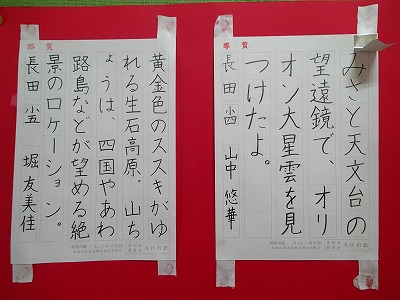 那賀
みさと天文台の
望遠鏡で、オリ
オン大星雲を見
つけたよ。
長田 小四 山中 悠華
那賀
黄金色のススキがゆ
れる生石高原。山ち
ょうは、四国やあわ
路島などが望める絶
景のロケーション。
長田 小五 堀 友美佳